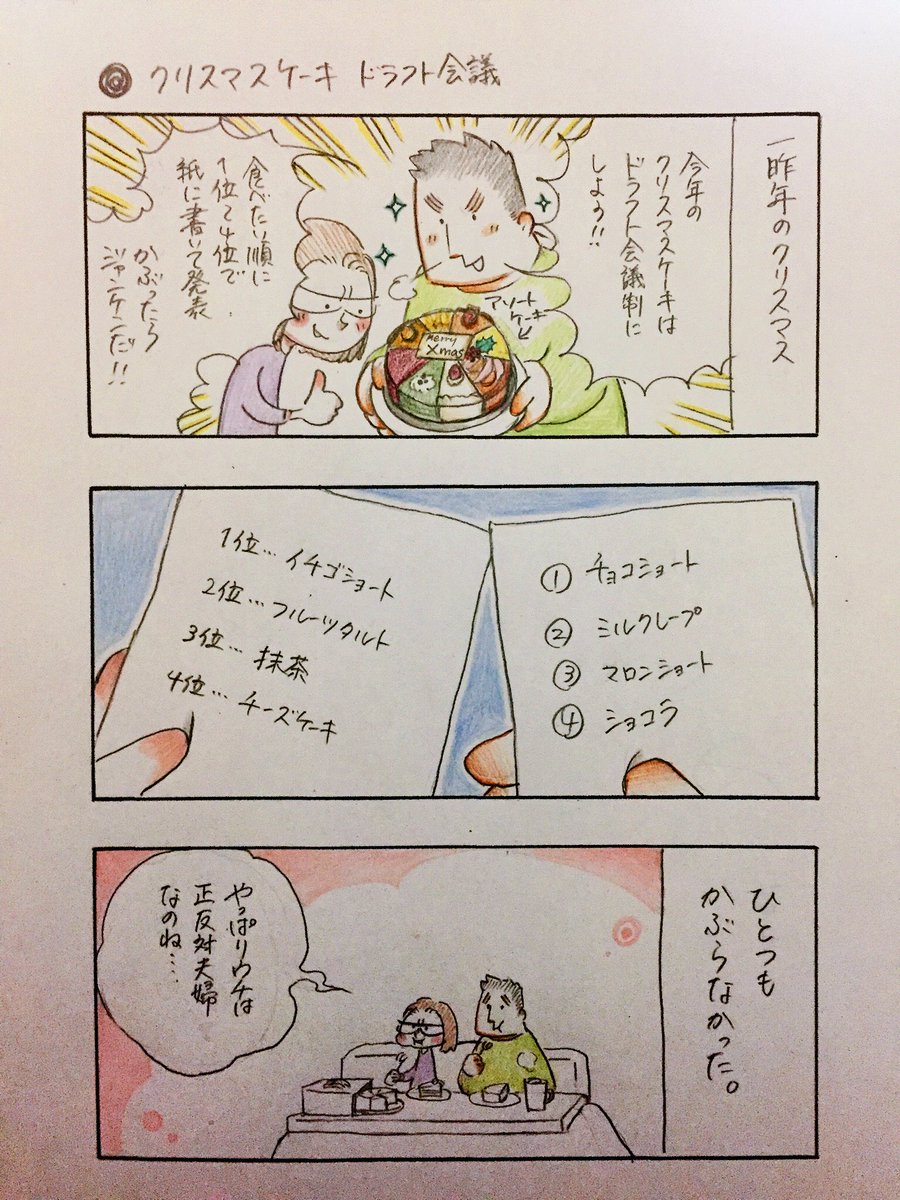 クリスマスケーキ ドラフト会議
一昨年のクリスマス
今年の
クリスマスケーキは
ドラフト会議制に
しよう!!
アソート
ケーキ
merry
Xmas
食べたい順に
1位〜4位で
紙に書いて発表
かぶったら
ジャンケンだ!!
1位…イチゴショート
2位…フルーツタルト
3位…抹茶
4位…チーズケーキ
① チョコショート
② ミルクレープ
③ マロンショート
④ ショコラ
ひとつも
かぶらなかった。
やっぱりウチは
正反対夫婦
なのね…